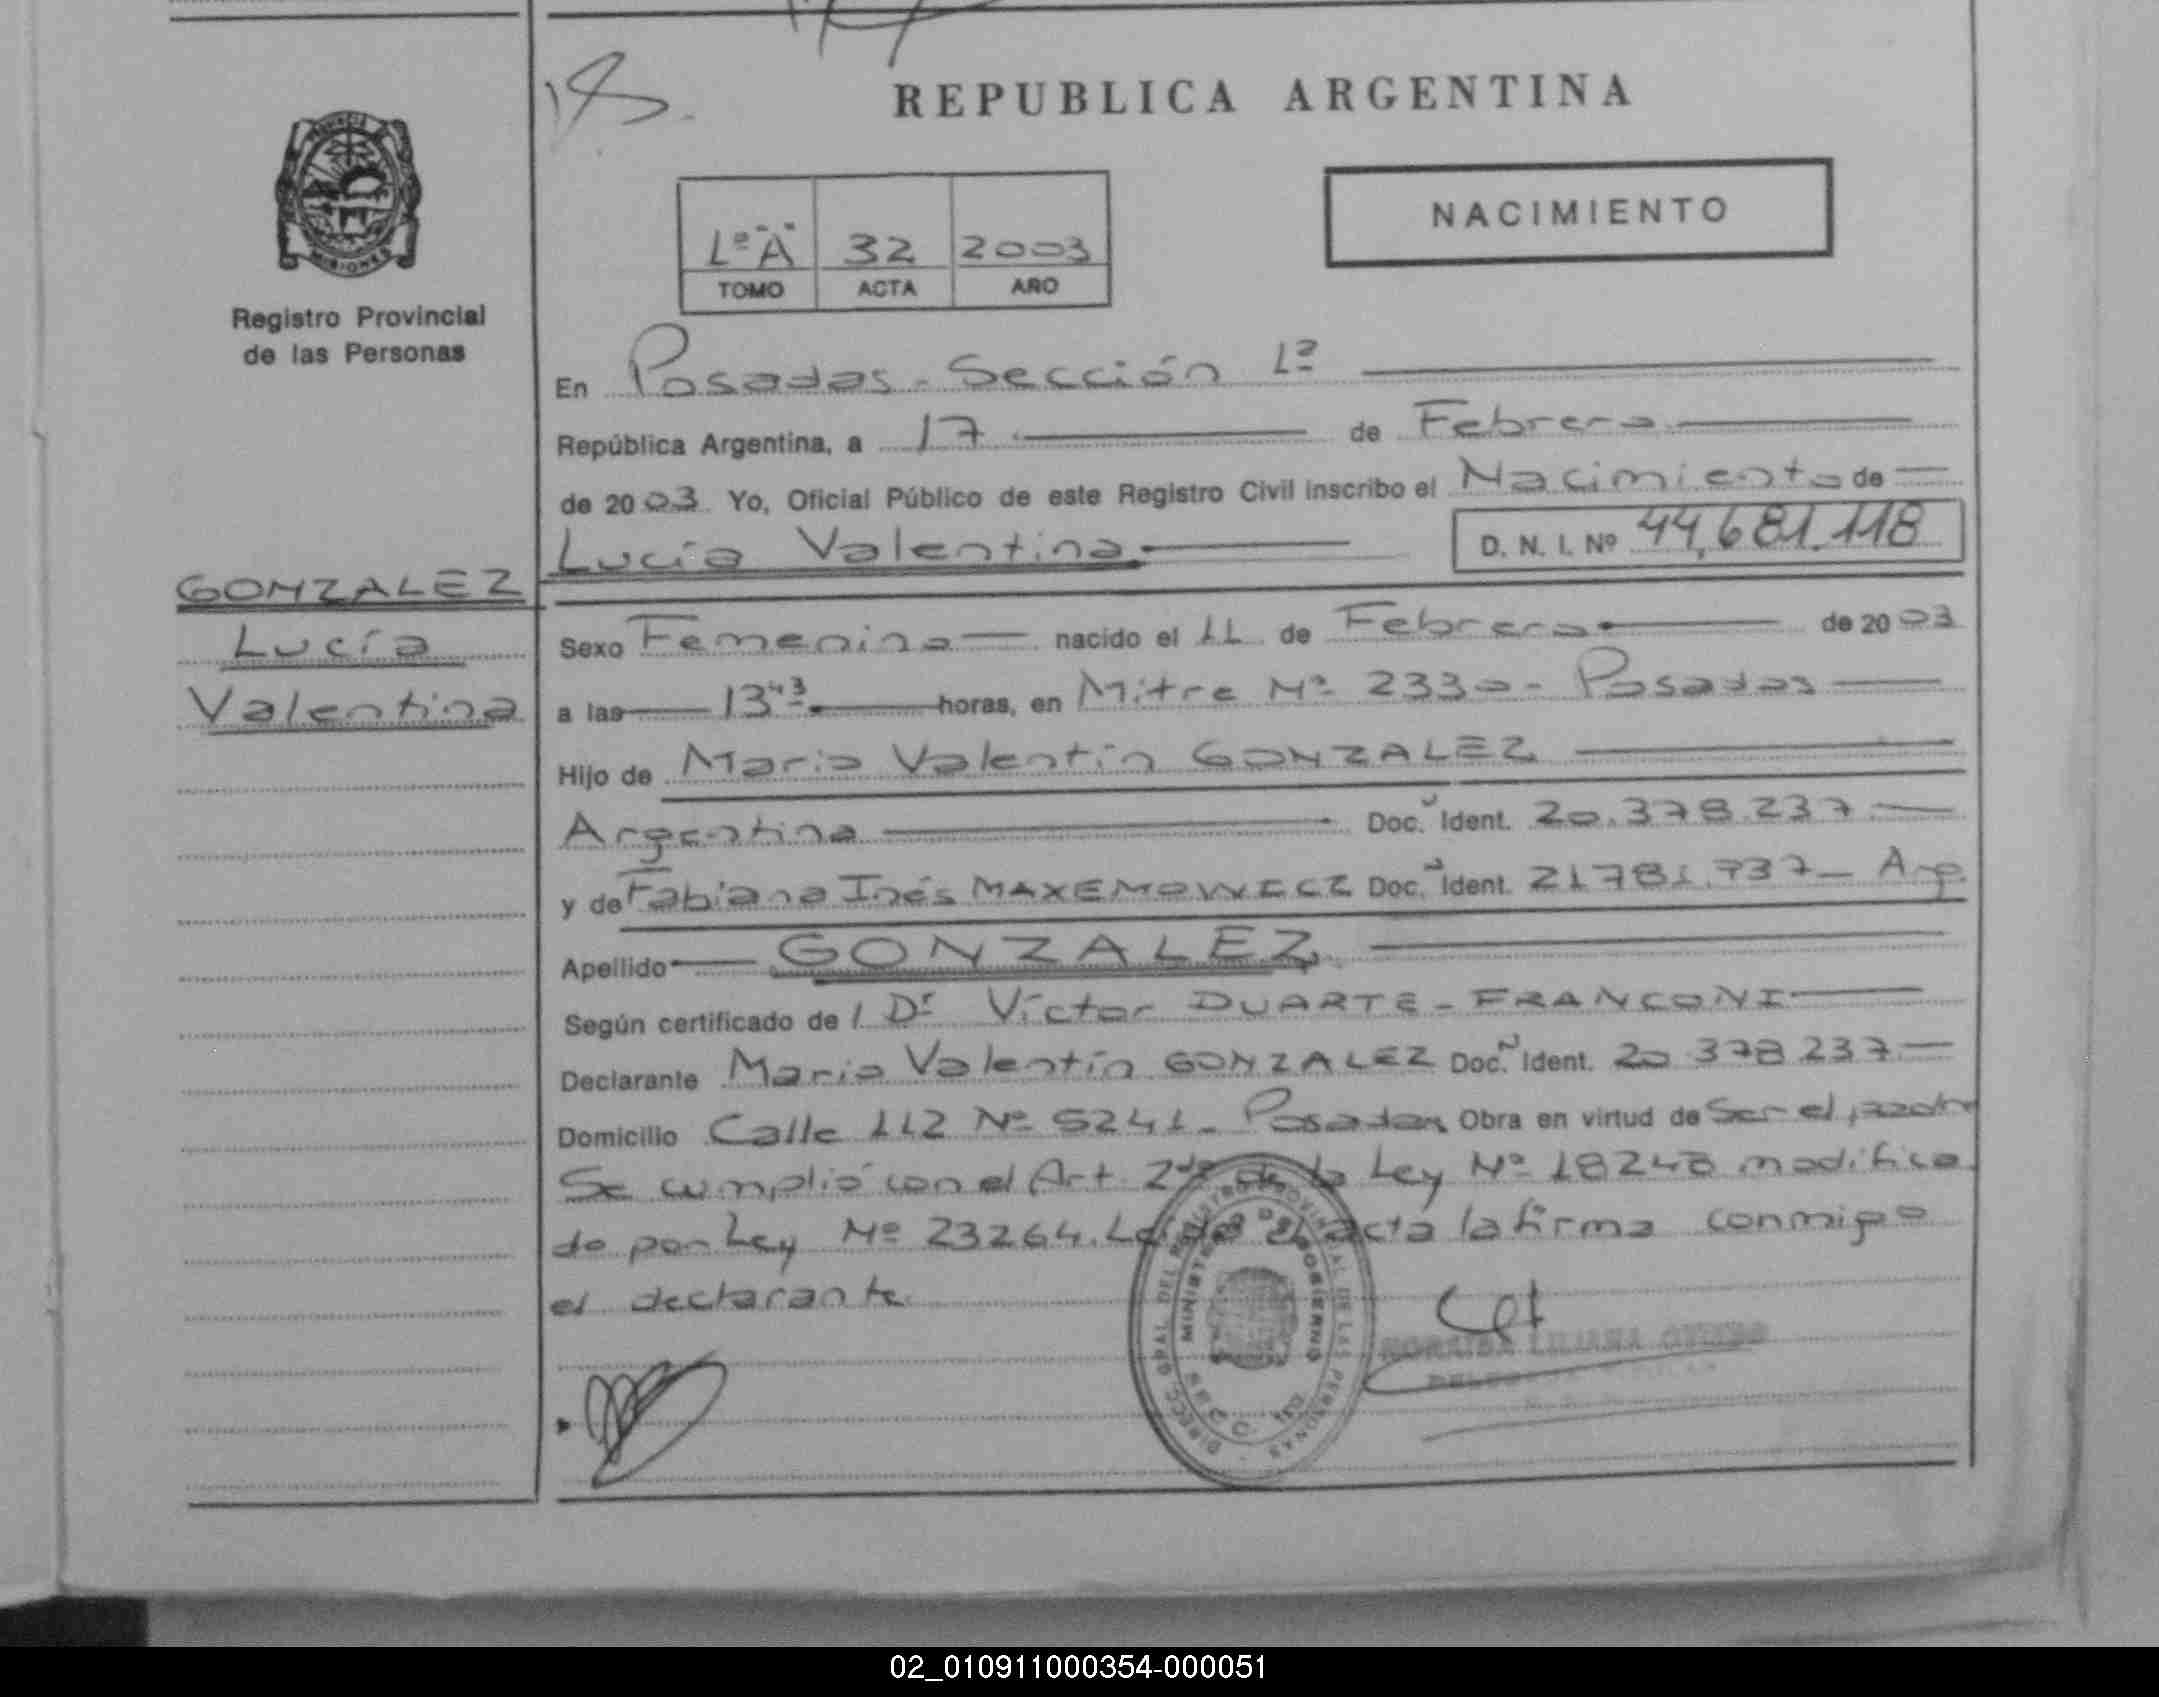 REPUBLICA ARGENTINA
NACIMIENTO
Lº "A" 32 2003
TOMO ACTA AÑO
MISIONES
Registro Provincial
de las Personas
En Posadas - Sección 1ª
República Argentina, a 17 de Febrero
de 2003. Yo, Oficial Público de este Registro Civil inscribo el Nacimiento de
Lucía Valentina
D. N. I. Nº 44.681.118
GONZALEZ
Lucía
Valentina
Sexo Femenino nacido el 11 de Febrero de 2003
a las 13 43 horas, en Mitre Nº 2330 - Posadas
Hijo de Mario Valentín GONZALEZ
Argentina Doc. Ident. 20.378.237
y de Fabiana Inés MAXEMOWICZ Doc. Ident. 21781.737 - Arg.
Apellido GONZALEZ
Según certificado de / Dr Víctor DUARTE - FRANCONI
Declarante Mario Valentín GONZALEZ Doc. Ident. 20 378 237
Domicilio Calle 112 Nº 5241 - Posadas Obra en virtud de Ser el padre
Se cumplió con el Art. 2do de la Ley Nº 18248 modifica
do por Ley Nº 23264. Leída el acta la firma conmigo
el declarante.
DIRECC. GRAL DEL REGISTRO PROVINCIAL DE LAS PERSONAS
MINISTERIO DE GOBIERNO
LILIANA
02_010911000354-000051